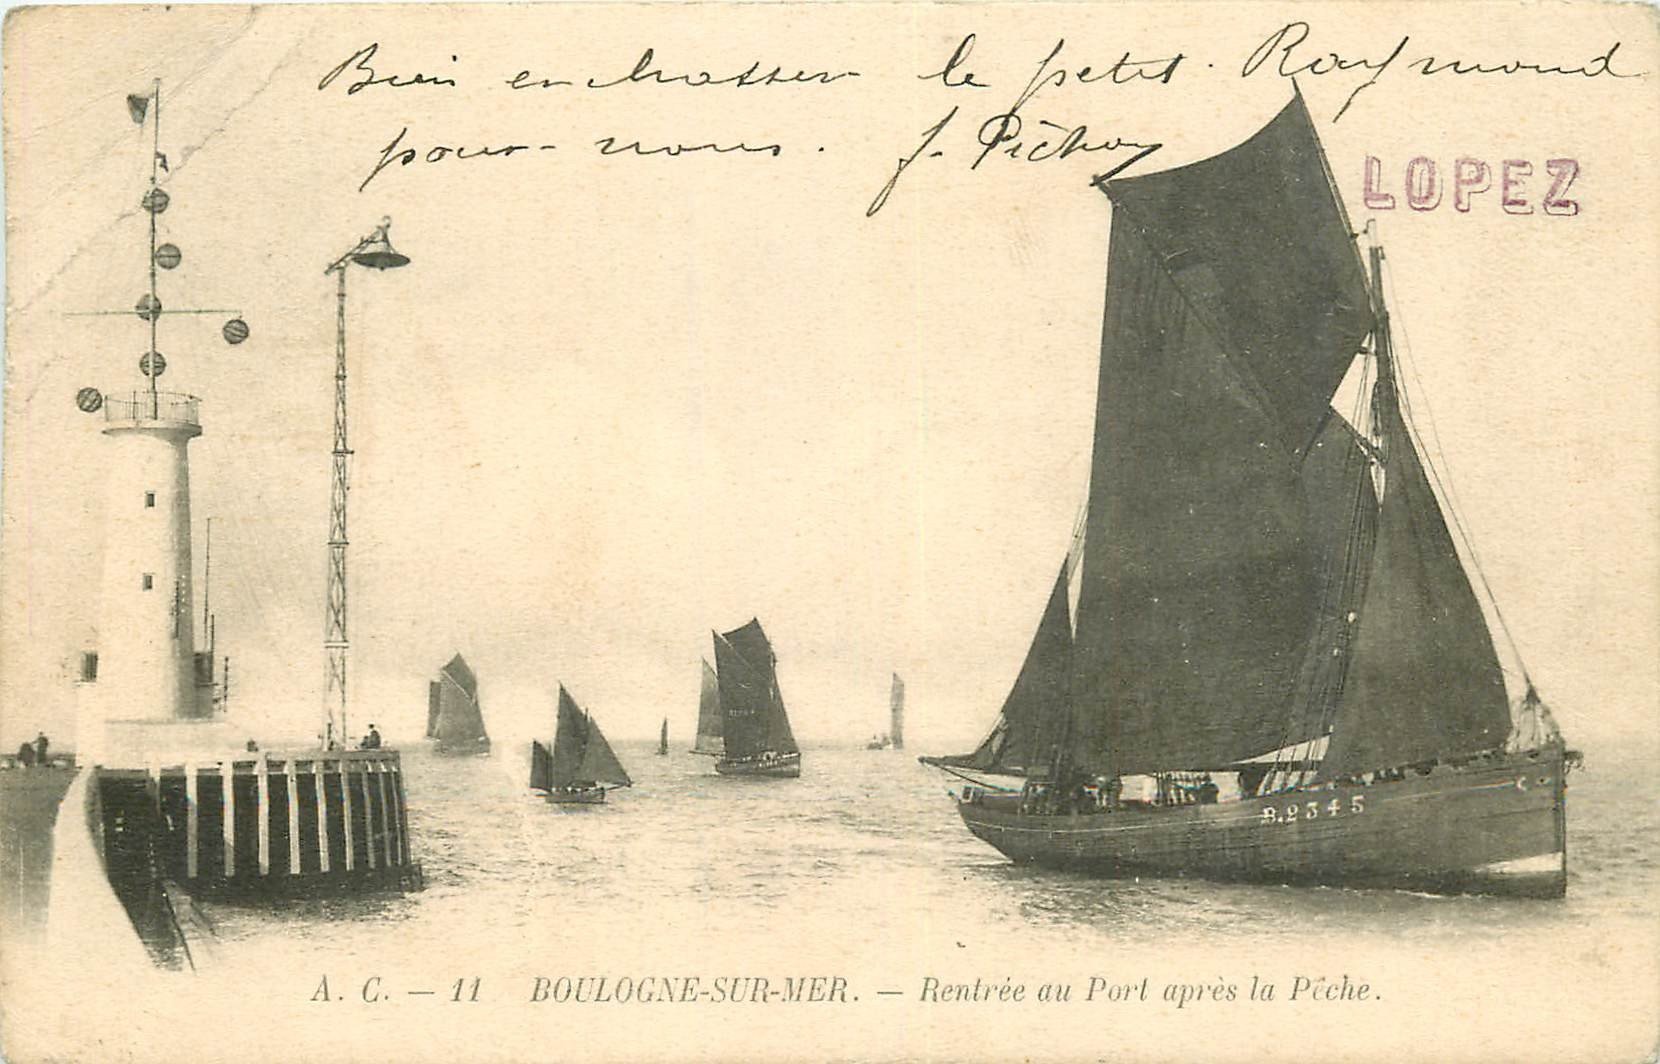 Bien embrasser le petit Raymond
pour nous. J. Pichon
LOPEZ
B.2345
A. C. — 11 BOULOGNE-SUR-MER. — Rentrée au Port après la Pêche.